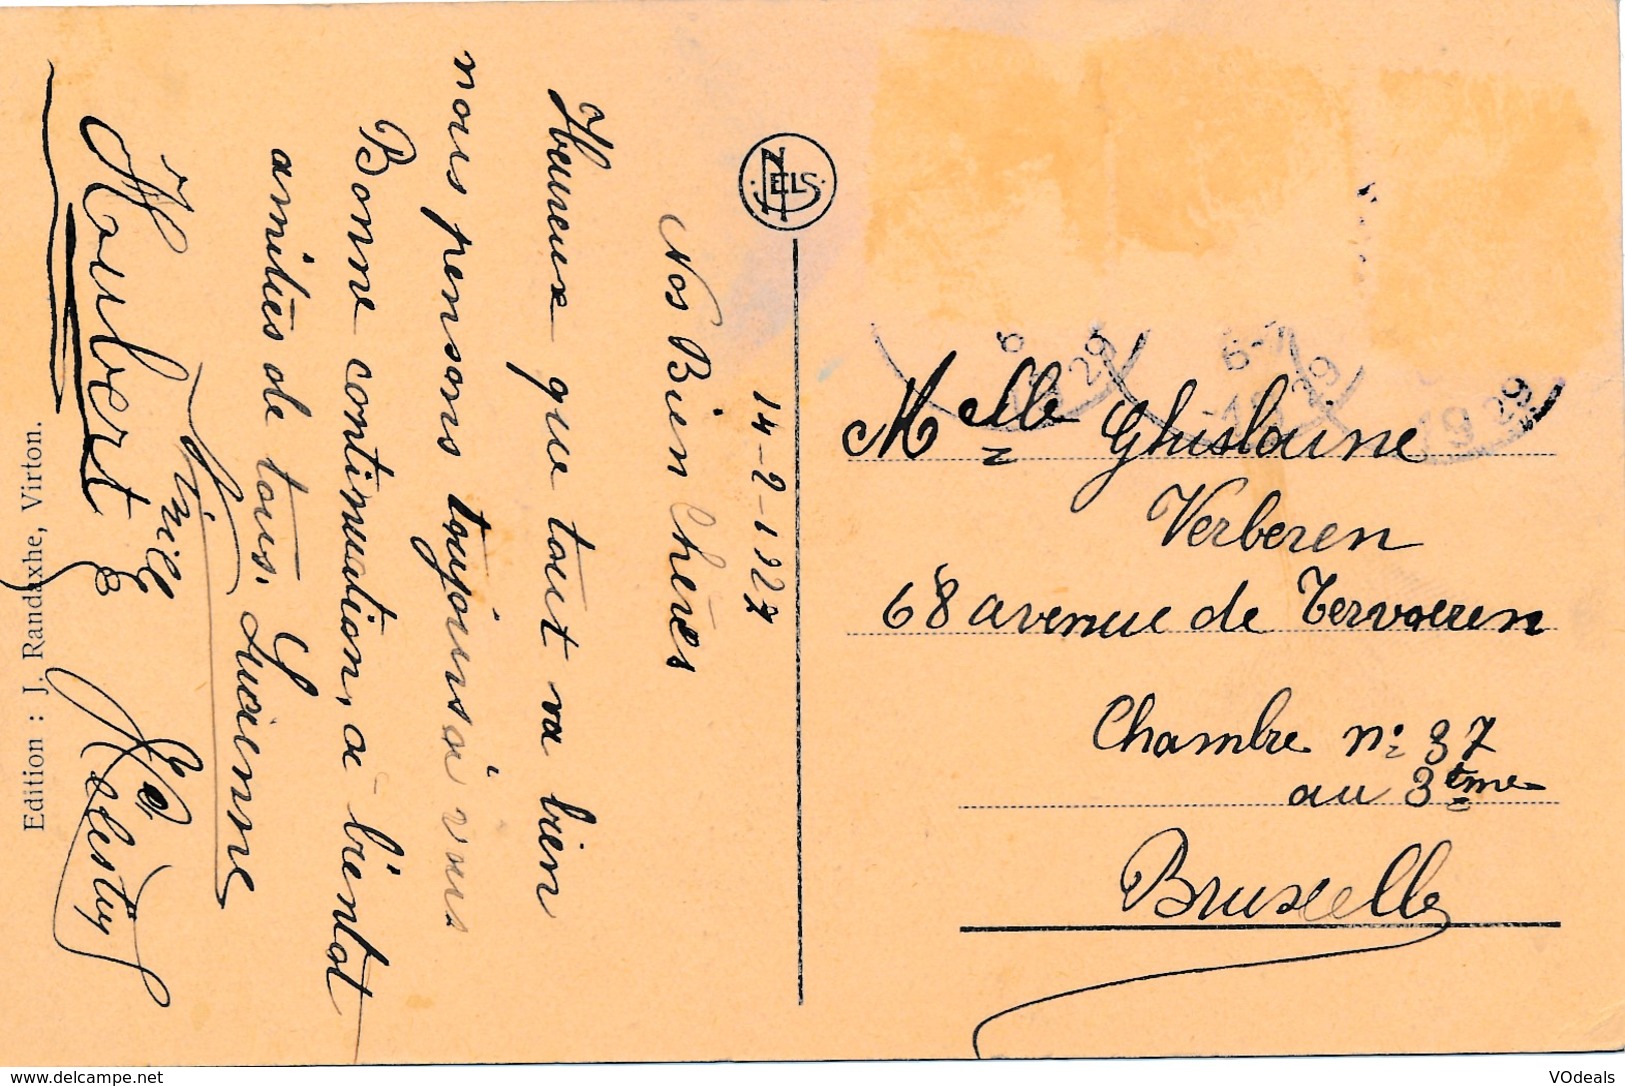 14-2-1927
Nos Bien Chères
Heureux que tout va bien
nous pensons toujours à vous
Bonne continuation, à bientot
amitiés de tous. Lucienne
Houbert
Edition : J. Randaxhe, Virton.
NELS
6
19 29
6-
-19 29
19 29
Melle Ghislaine
Verberen
68 avenue de Tervoeren
Chambre n: 37
au 3tme
Bruxelle
www.delcampe.net
VOdeals